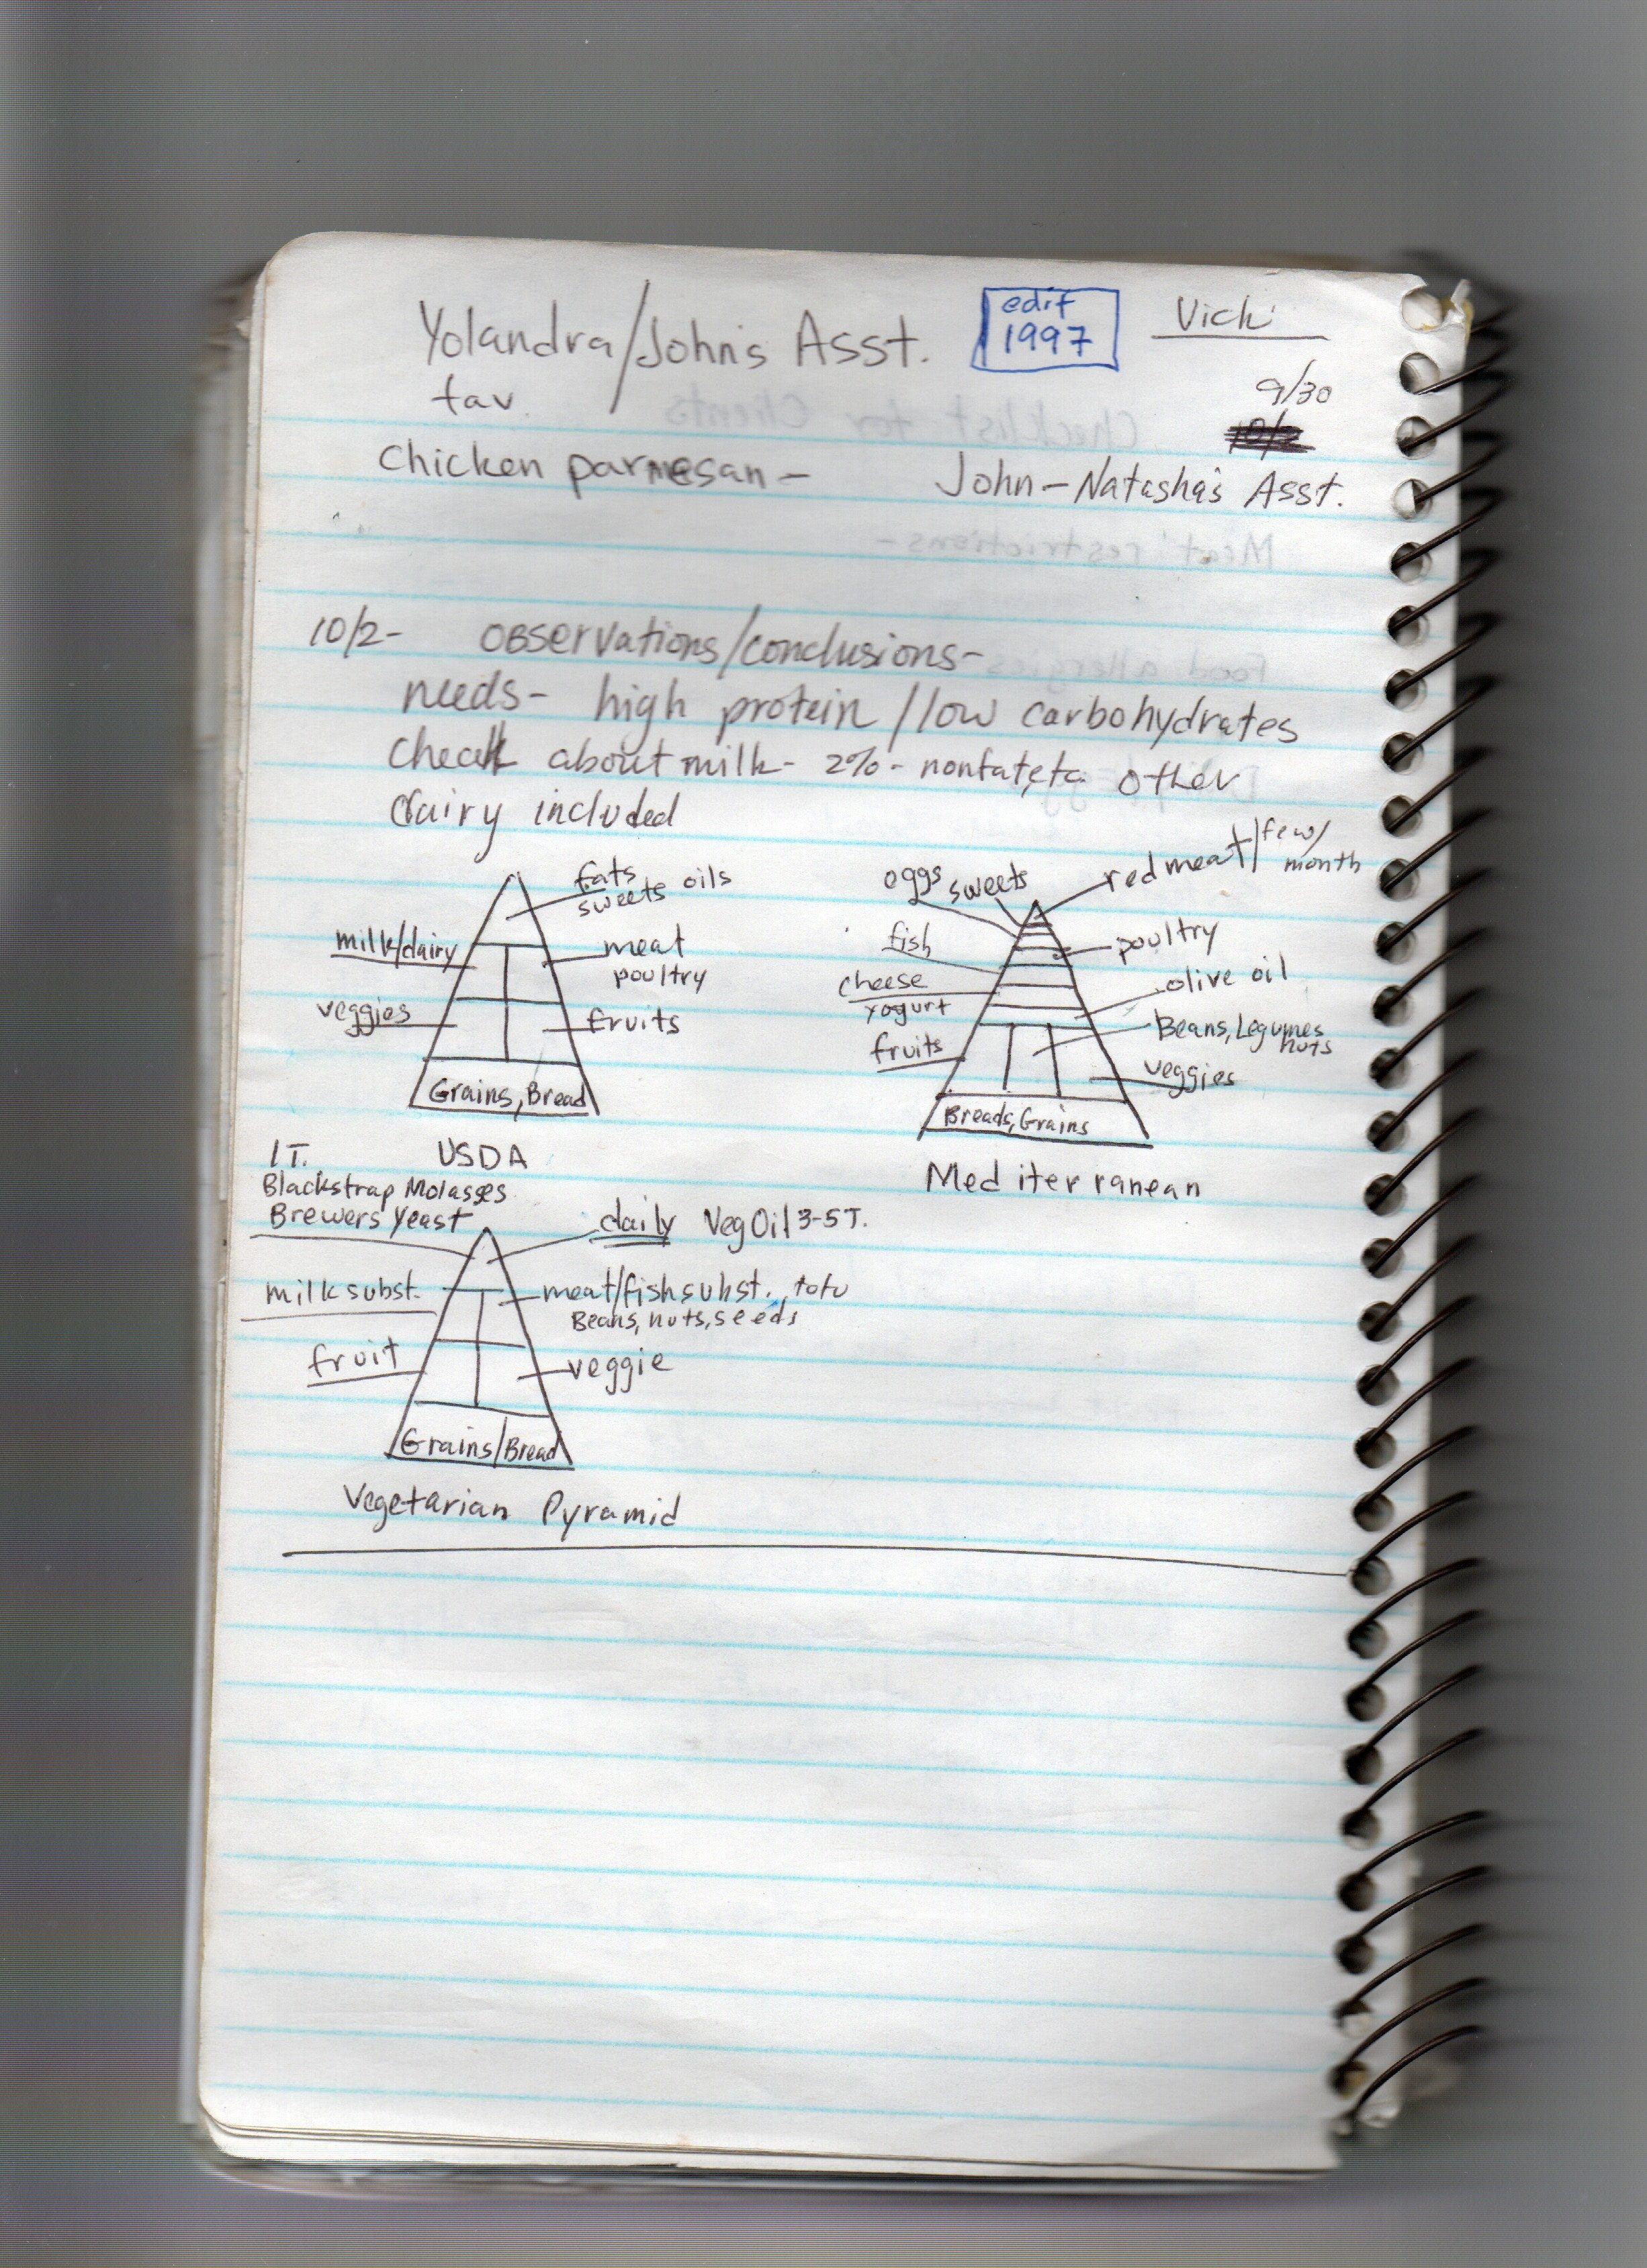 Yolandra/John's Asst.
edit
1997
Vicki
fav.
9/30
10/2
Chicken parmesan -
John - Natasha's Asst.
10/2 - Observations/conclusions -
needs - high protein / low carbohydrates
check about milk - 2% - nonfat, etc. other
dairy included
fats
sweets oils
milk/dairy
meat
poultry
veggies
fruits
Grains, Bread
USDA
eggs
sweets
red meat/few/
month
fish
poultry
cheese
yogurt
olive oil
Beans, Legumes
nuts
fruits
veggies
Breads, Grains
Mediterranean
1T.
Blackstrap Molasses
Brewers Yeast
daily Veg Oil 3-5T.
milk subst.
meat/fish subst., tofu
Beans, nuts, seeds
fruit
veggie
Grains/Bread
Vegetarian Pyramid